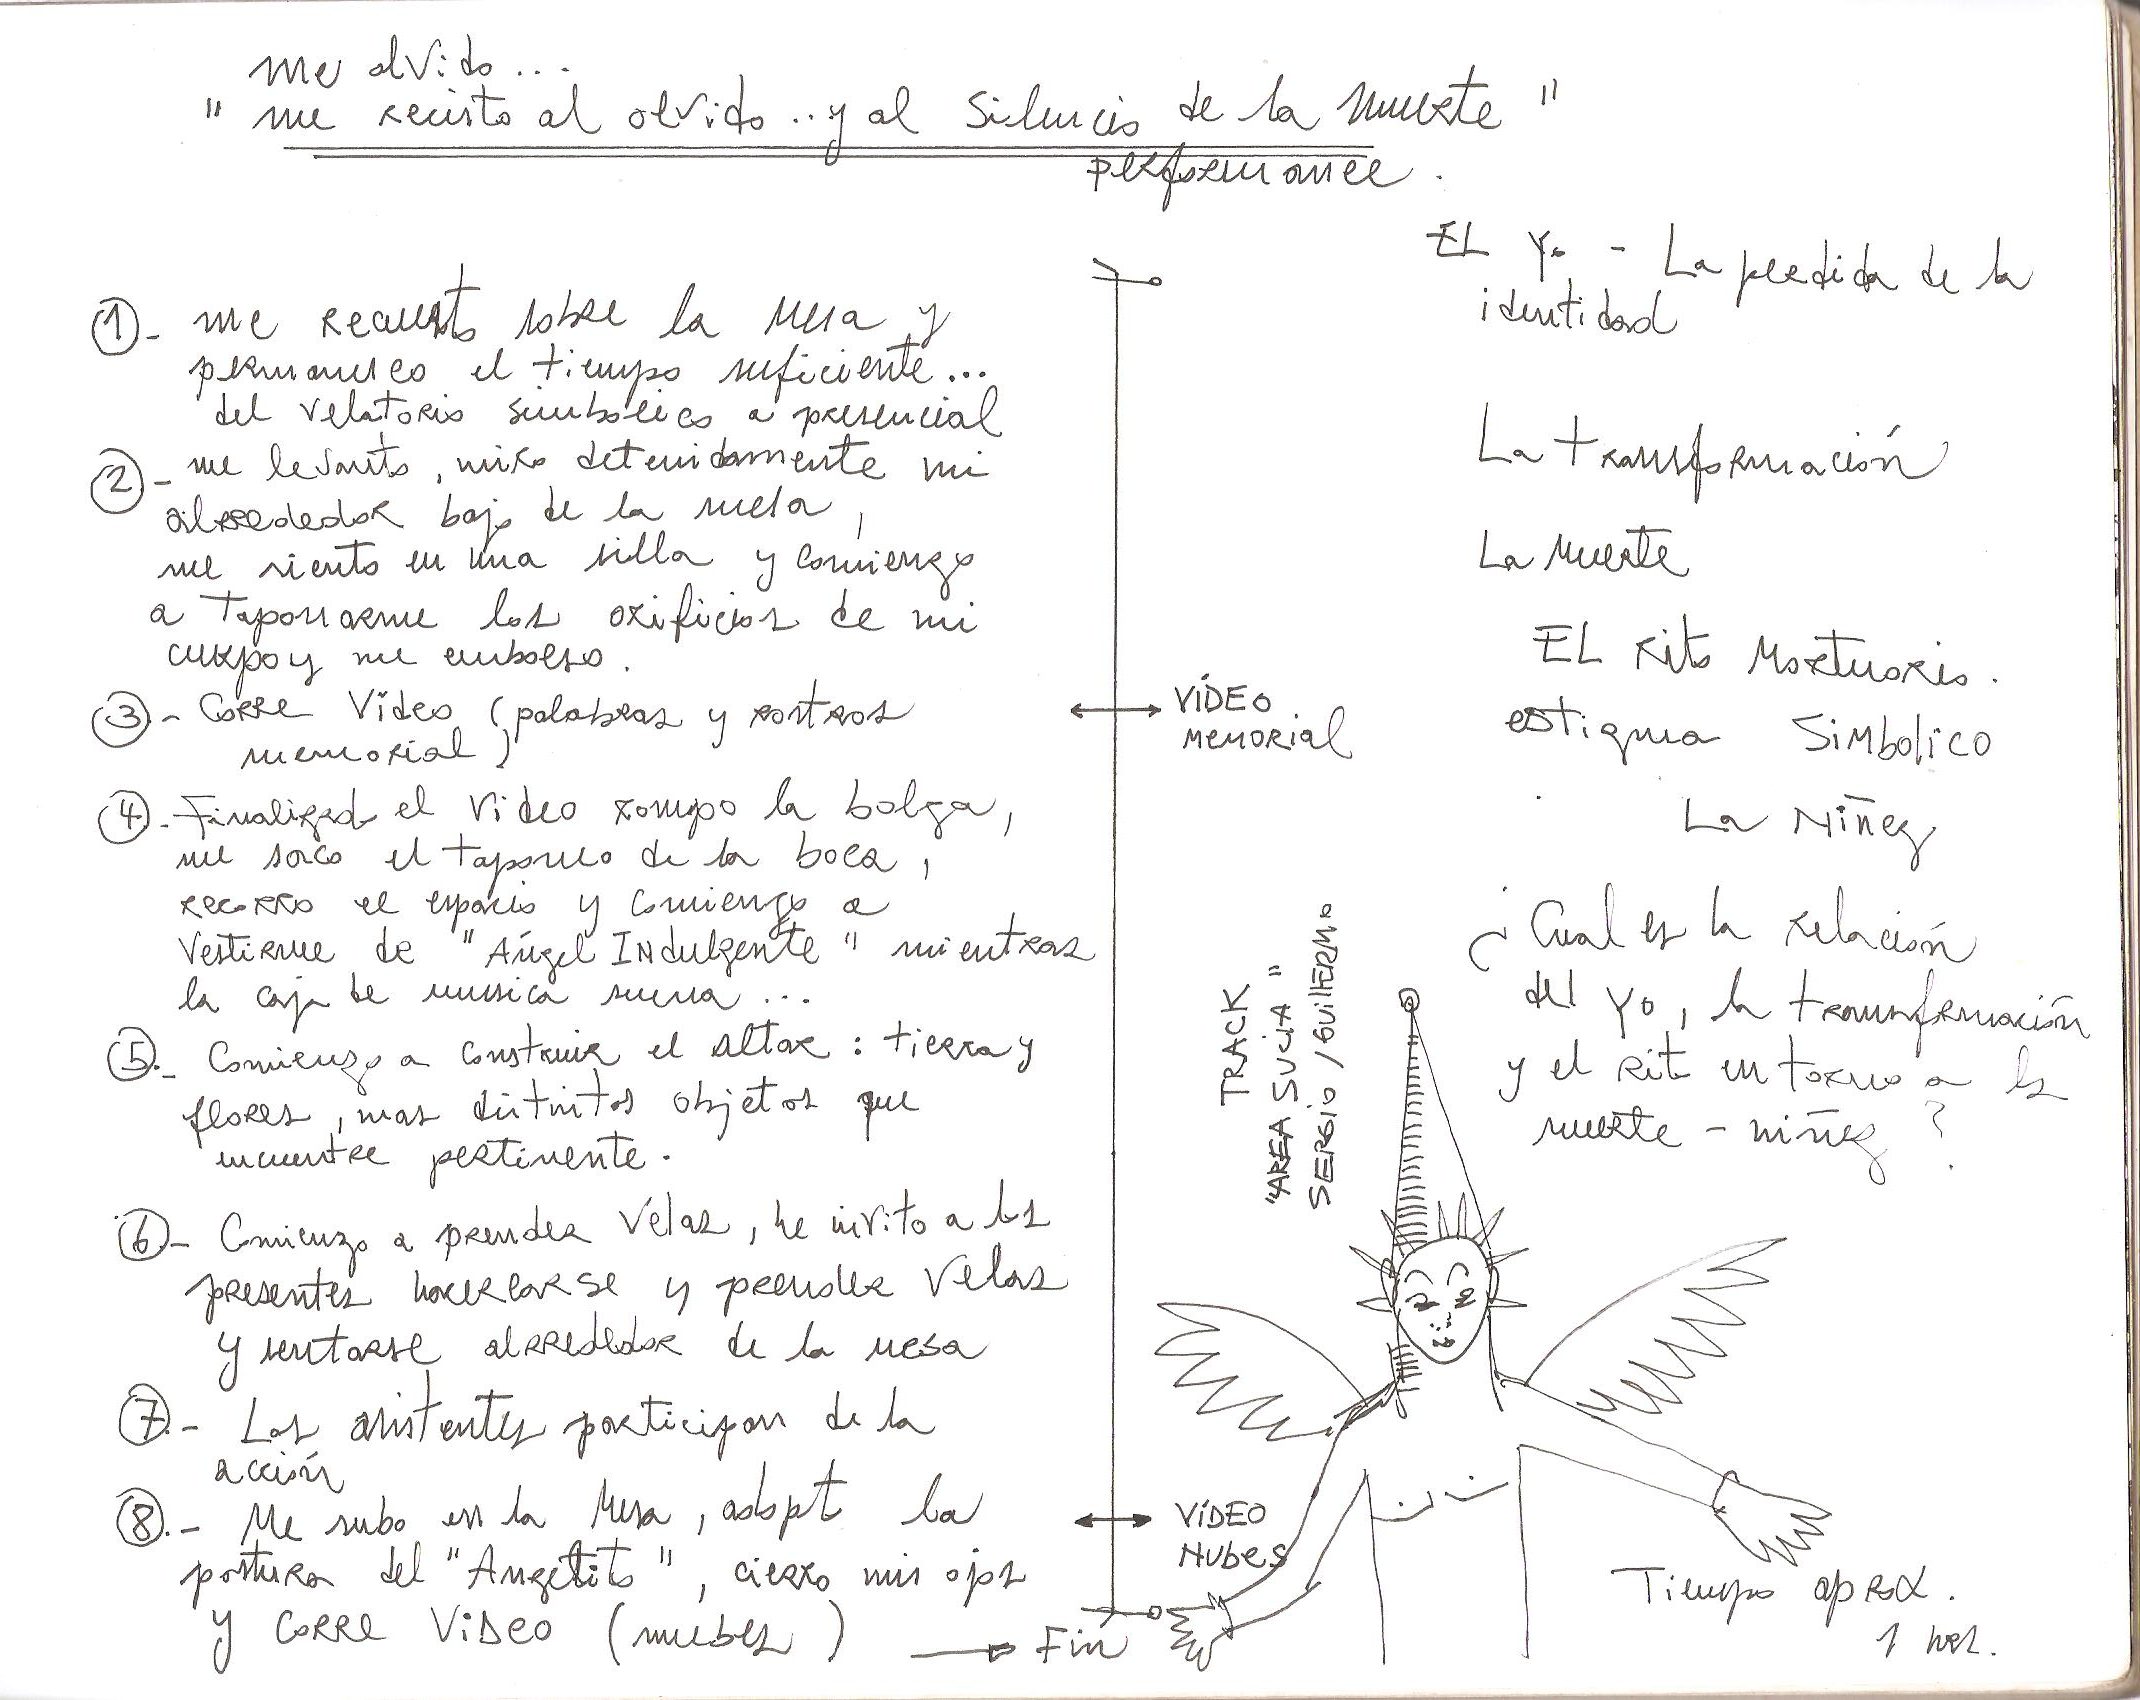 me olvido...
"me recisto al olvido...y al silencio de la muerte"
performance.
①- me recuesto sobre la mesa y
permanesco el tiempo suficiente...
del velatorio simbolico a presencial
②- me levanto, miro detenidamente mi
alrrededor bajo de la mesa,
me siento en una silla y comienzo
a taponarme los orificios de mi
cuerpo y me embolso.
③- Corre Video (palabras y rostros
memorial)
④- Finalizado el video rompo la bolza,
me saco el taponeo de la boca,
recorro el espacio y comienzo a
vestirme de "Ángel INdulgente" mientras
la caja de musica suena...
⑤- Comienzo a construir el altar: tierra y
flores, mas distintos objetos que
encuentre pertinente.
⑥- Comienzo a prender velas, he invito a los
presentes hacercarse y prender velas
y sentarse alrrededor de la mesa
⑦- Los asistentes participan de la
acción
⑧- Me subo en la Mesa, adopto la
postura del "Angelito", cierro mis ojos
y CORRE VIDEO (nuebes) → Fin
VÍDEO
MEMORIAL
VÍDEO
NUBES
TRACK
"AREA SUCIA"
SERGIO / GUILLERMO
EL Yo - La perdida de la
identidad
La transformación
La Muerte
EL Rito Mortuorio.
estigma Simbolico
La Niñez
¿Cual es la relación
del yo, la transformación
y el rito en torno a la
muerte - niñez?
Tiempo aprox.
1 hrs.